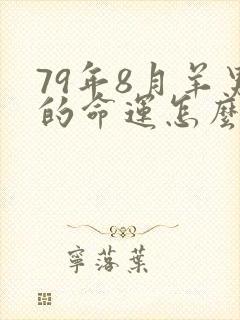 79年8月羊男
的命运怎麽
寧落葉